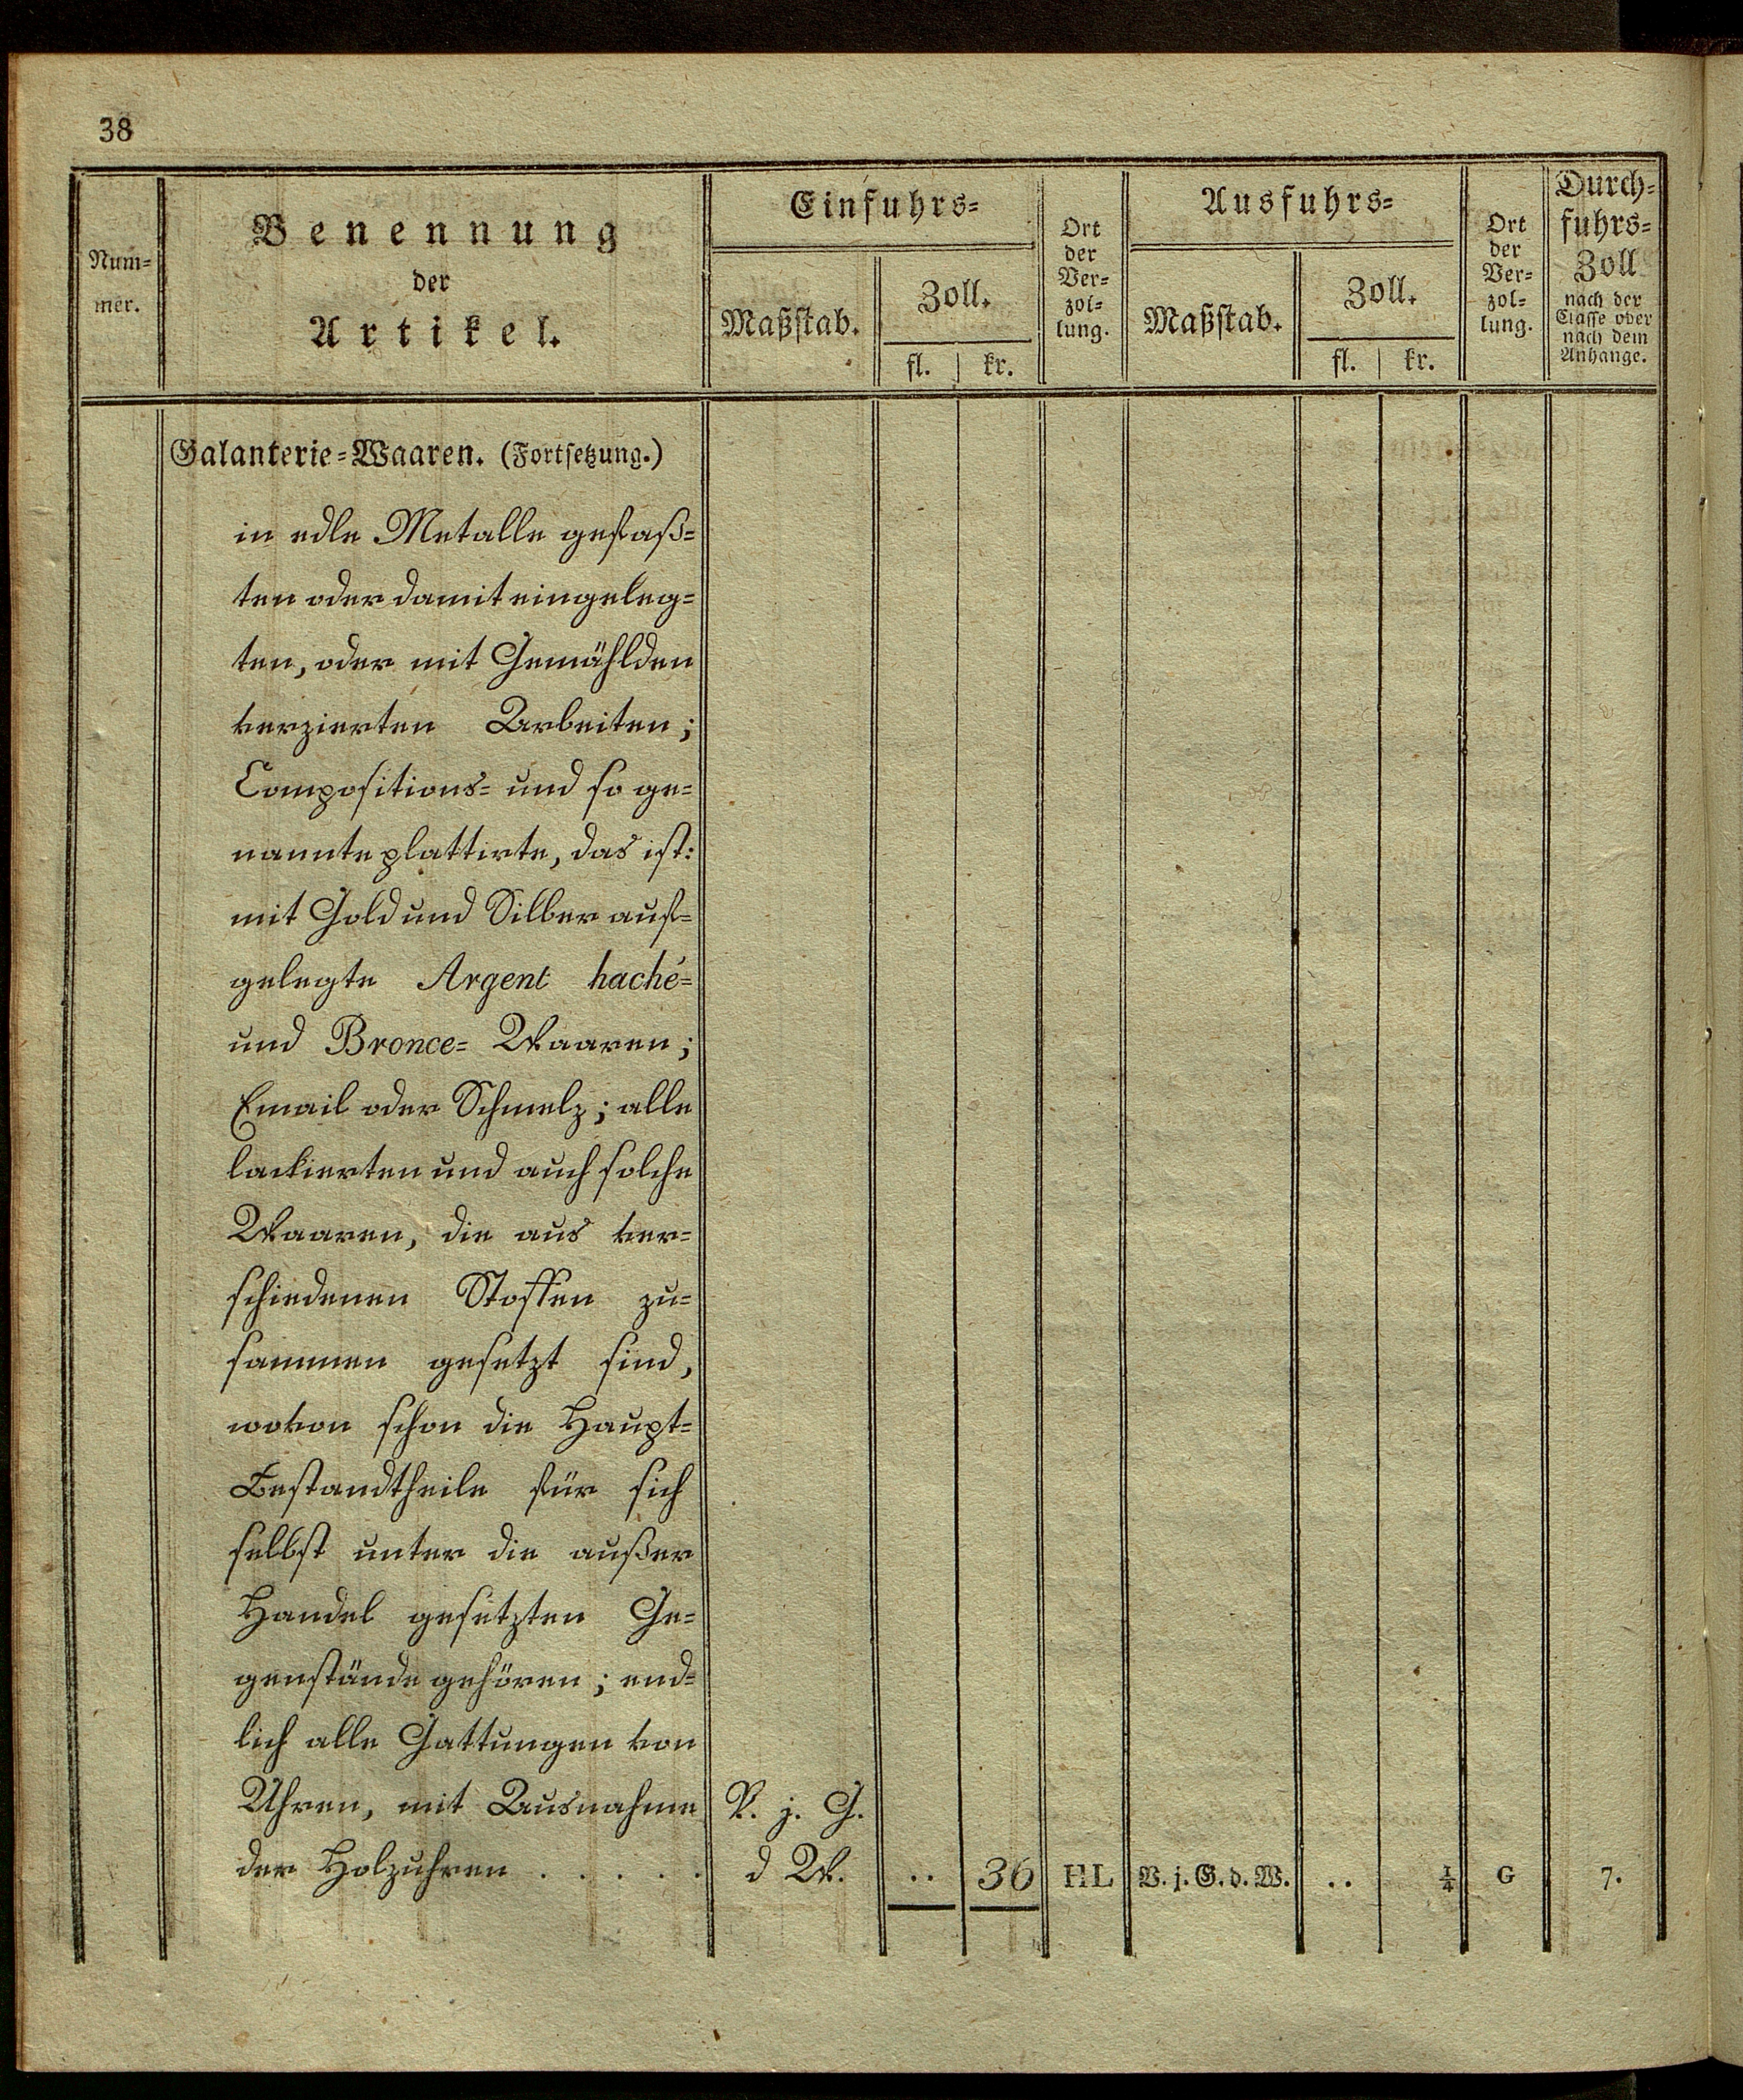 38
Num-
mer.
Benennung
der
Artikel.
Einfuhrs-
Maßstab.
Zoll.
fl. | kr.
Ort
der
Ver-
zol-
lung.
Ausfuhrs-
Maßstab.
Zoll.
fl. | kr.
Ort
der
Ver-
zol-
lung.
Durch-
fuhrs-
Zoll
nach der
Classe oder
nach dem
Anhange.
Galanterie-Waaren. (Fortsetzung.)
in edle Metalle gefaß-
ten oder damit eingeleg-
ten, oder mit Gemählden
verzierten Arbeiten;
Compositions- und so ge-
nannte plattirte, das ist:
mit Gold und Silber auf-
gelegte Argent haché-
und Bronce- Waaren;
Email oder Schmelz; alle
lackierten und auch solche
Waaren, die aus ver-
schiedenen Stoffen zu-
sammen gesetzt sind,
wovon schon die Haupt-
Bestandtheile für sich
selbst unter die außer
Handel gesetzten Ge-
genstände gehören; end-
lich alle Gattungen von
Uhren, mit Ausnahme V. j. G.
der Holzuhren . . . . . d W. .. 36 HL V. j. G. d. W. .. ¼ G 7.